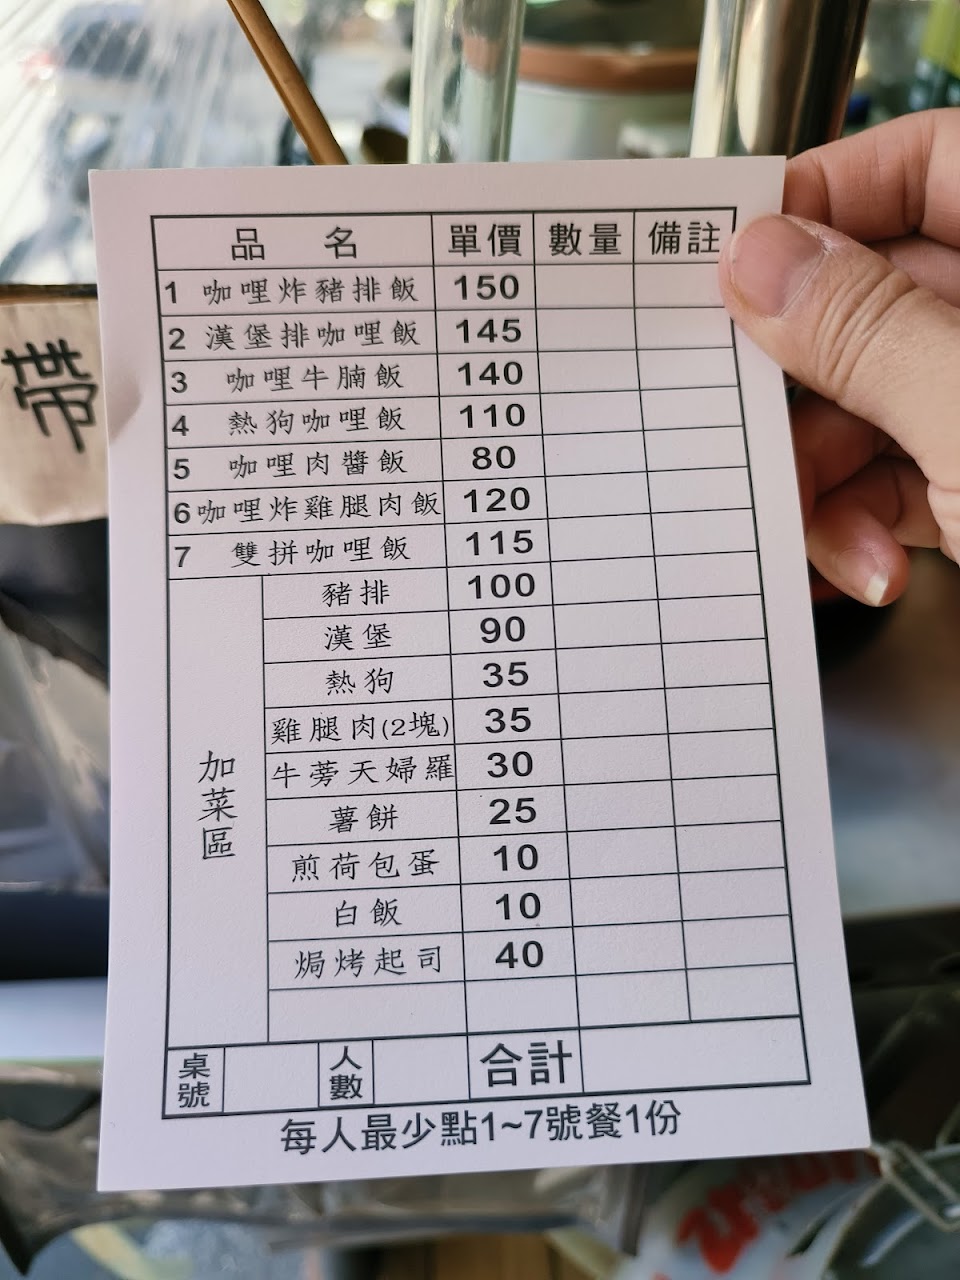 帶
品 名 單價 數量 備註
1 咖哩炸豬排飯 150
2 漢堡排咖哩飯 145
3 咖哩牛腩飯 140
4 熱狗咖哩飯 110
5 咖哩肉醬飯 80
6 咖哩炸雞腿肉飯 120
7 雙拼咖哩飯 115
加菜區
豬排 100
漢堡 90
熱狗 35
雞腿肉(2塊) 35
牛蒡天婦羅 30
薯餅 25
煎荷包蛋 10
白飯 10
焗烤起司 40
桌號 人數 合計
每人最少點1~7號餐1份